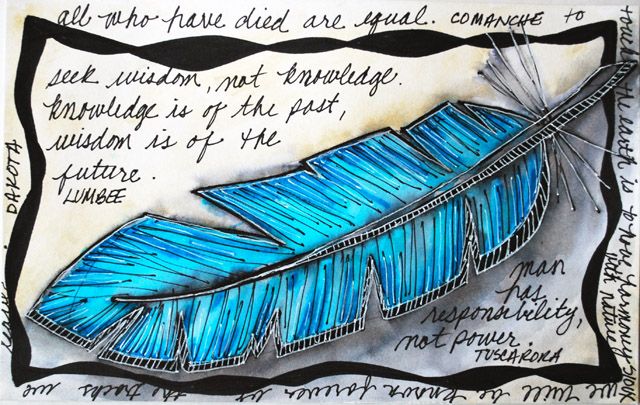 all who have died are equal. COMANCHE to
touch the earth is to have harmony
with nature
SIOUX
we will be known forever by the tracks we
DAKOTA
seek wisdom, not knowledge.
knowledge is of the past,
wisdom is of the
future.
LUMBEE
man
has
responsibility,
not power.
TUSCARORA